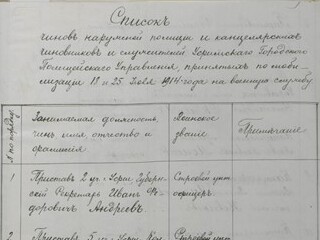 Списокъ
чиновъ наружной полиціи и канцелярскихъ
чиновниковъ и служителей Горійскаго Городского
Полицейскаго Управленія, принятыхъ по моби-
лизаціи 18 и 25 Іюля 1914 года на военную службу
№ по порядку
Занимаемая должность,
чинъ имя отчество и
фамилія
Воинское
званіе
Примѣчаніе
1
Приставъ 2 уч. г. Губерн-
скій Секретарь Иванъ Фе-
доровичъ Андреевъ
Строевой унт.
офицеръ
2
Приставъ 5 уч. г. Кол-
Строевой унт.